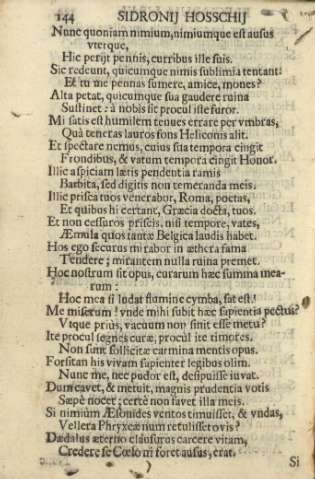 144 SIDRONII HOSSCHII
Nunc quoniam nimium, nimiumque est ausus
vterque,
Hic perijt pennis, curribus ille suis.
Sic redeunt, quicumque nimis sublimia tentant:
Et tu me pennas sumere, amice, mones?
Alta petat, quicumque sua gaudere ruina
Sustinet: à nobis sit procul iste furor.
Mi satis est humilem tenues errare per vmbras,
Quà teneras lauros fons Heliconis alit.
Et spectare nemus, cuius sua tempora cingit
Frondibus, & vatum tempora cingit Honor.
Illic aspiciam lætis pendentia ramis
Barbita, sed digitis non temeranda meis.
Illic prisca tuos venerabor, Roma, poetas,
Et quibus hi certant, Græcia docta, tuos.
Et non cessuros priscis, nisi tempore, vates,
Æmula quos tantæ Belgica laudis habet.
Hos ego securus mirabor in æthera fama
Tendere; mirantem nulla ruina premet.
Hoc nostrum sit opus, curarum hæc summa mea-
rum:
Hoc mea si ludat flumine cymba, sat est.
Me miserum! vnde mihi subit hæc sapientia pectus?
Vtque prius, vacuum non sinit esse metu?
Ite procul segnes curæ, procul ite timores.
Non sunt sollicitæ carmina mentis opus.
Forsitan his vivam sapienter legibus olim.
Nunc me, nec pudor est, desipuisse iuvat.
Dum cavet, & metuit, magnis prudentia votis
Sæpè nocet; certè non favet illa meis.
Si nimiùm Æsonides ventos timuisset, & vndas,
Vellera Phryxeæ num retulisset ovis?
Dædalus æterno clausurus carcere vitam,
Credere se Cœlo ni foret ausus, erat.
Si